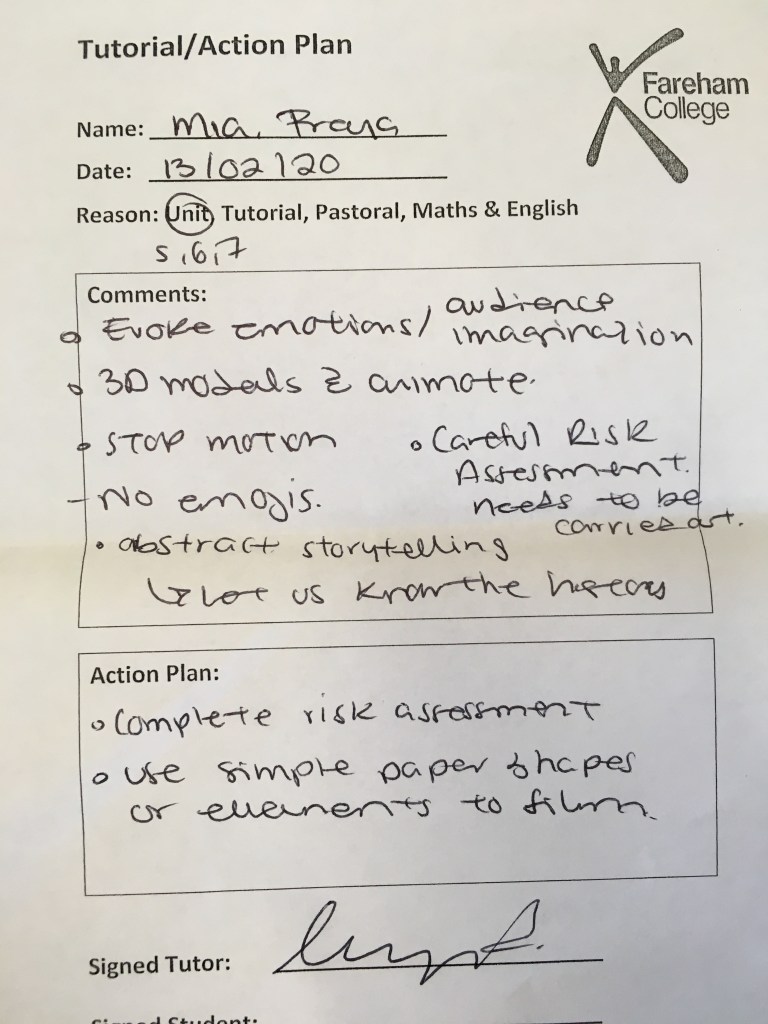 Tutorial/Action Plan
Fareham
College
Name: Mia, Freya
Date: 13/02/20
Reason: Unit, Tutorial, Pastoral, Maths & English
5,6,7
Comments:
Evoke emotions/ audience
imagination
3D models & animate.
Stop motion
Careful Risk
Assessment.
needs to be
carried out.
- No emojis.
abstract storytelling
let us know the
Action Plan:
Complete risk assessment
Use simple paper shapes
or elements to film.
Signed Tutor:
Signed Student: